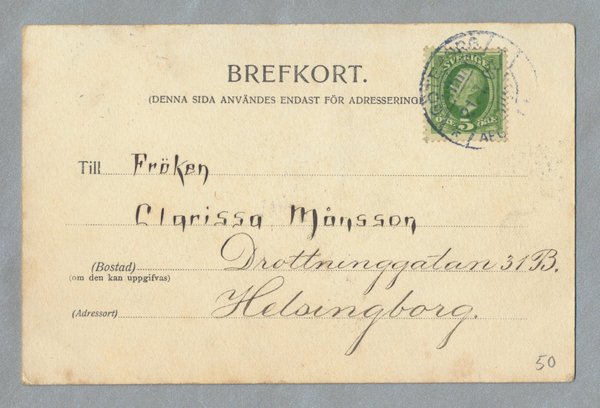 BREFKORT.
(DENNA SIDA ANVÄNDES ENDAST FÖR ADRESSERING
SVERIGE
5 ÖRE
Till Fröken
Clarissa Månsson
(Bostad) Drottninggatan 31 B.
(om den kan uppgifvas)
(Adressort) Helsingborg.
50